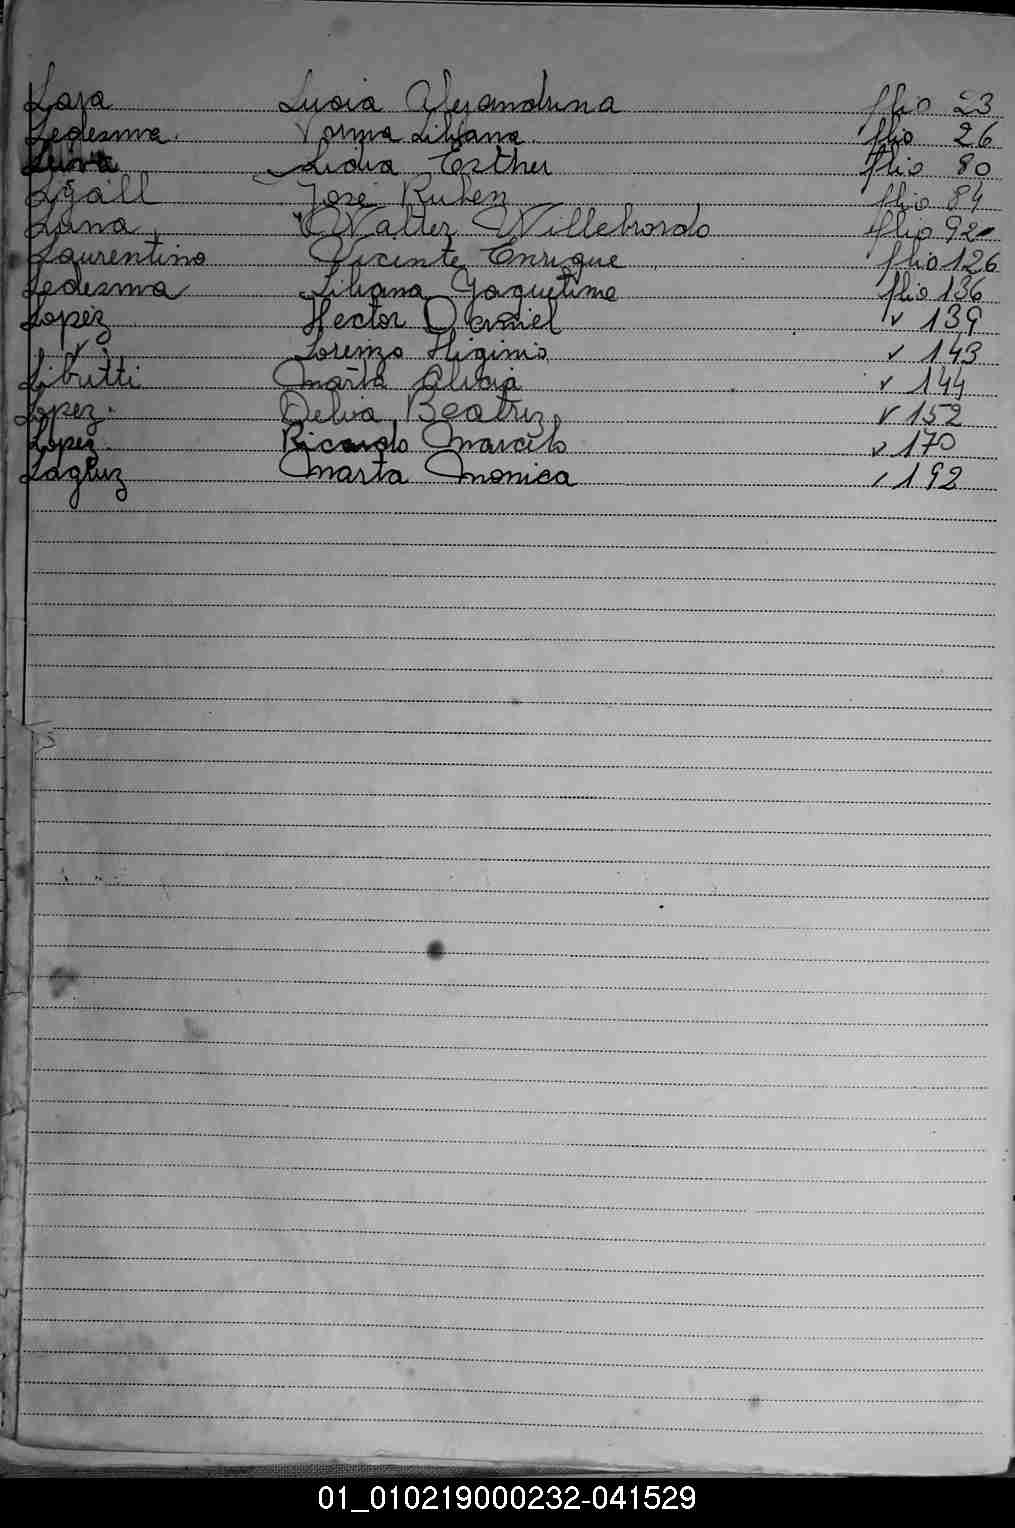 Lasa Lucia Alejandrina flio 23
Ledesma. Norma Liliana. flio 26
Leiva Lidia Esther flio 80
Lgall José Ruben flio 84
Luna Walter Willebrordo flio 92
Laurentino Vicente Enrique flio 126
Ledesma Liliana Jaquelina flio 136
Lopez Hector Daniel " 139
" Lorenzo Higinio " 143
Libutti Marta Alicia " 144
Lopez. Delia Beatriz " 152
Lopez. Ricardo Marcelo " 170
Marta Monica " 192
01_010219000232-041529